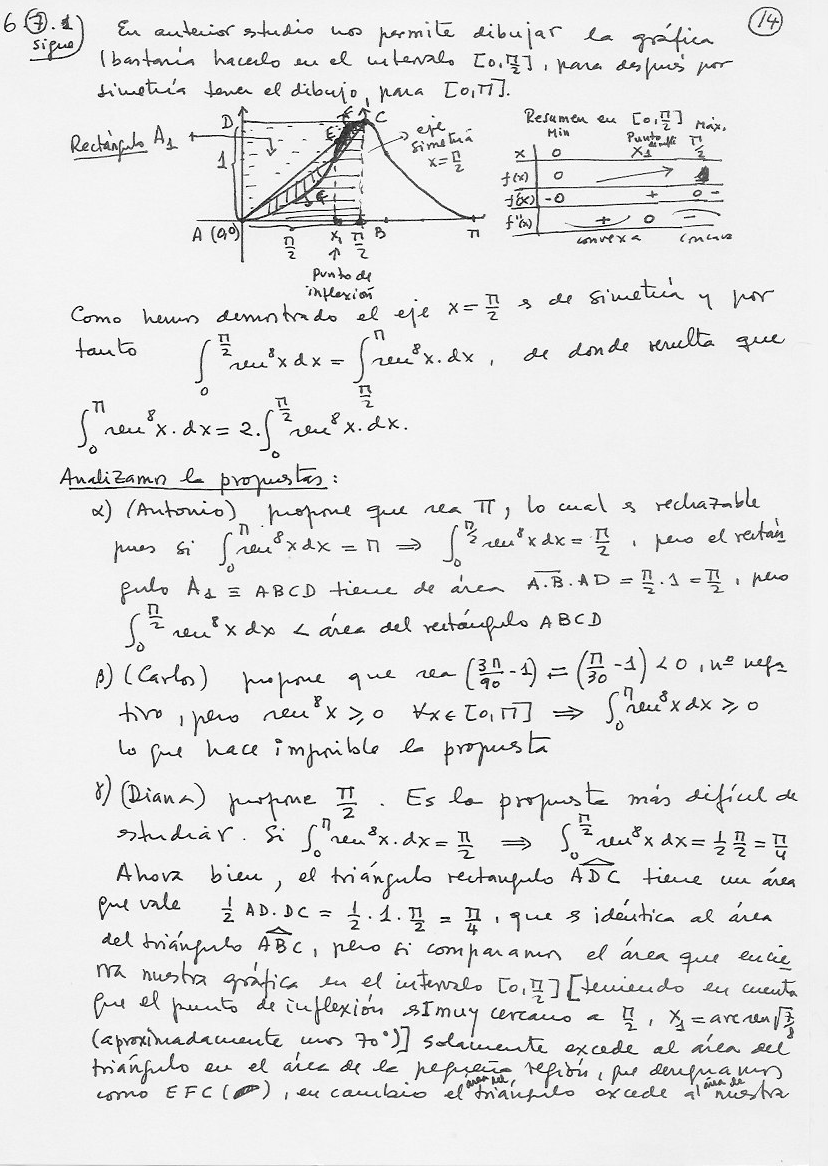 6 7.1) En anterior estudio nos permite dibujar la gráfica 14
sigue (bastaría hacerlo en el intervalo [0,π/2], para después por
simetría tener el dibujo, para [0,π].
Rectángulo A₁
D E F C
1
G
eje
simetría
x=π/2
A (0,0) π/2 x₁ π/2 B π
Punto de
inflexión
Resumen en [0,π/2]
Min Punto de infl. Máx.
x 0 x₁ π/2
f(x) 0 1
f'(x) -0 + 0 -
f''(x) + 0 -
convexa cóncava
Como hemos demostrado el eje x=π/2 es de simetría y por
tanto ∫₀^(π/2) sen⁸x dx = ∫_(π/2)^π sen⁸x·dx, de donde resulta que
∫₀^π sen⁸x·dx = 2·∫₀^(π/2) sen⁸x·dx.
Analizamos las propuestas:
α) (Antonio) propone que sea π, lo cual es rechazable
pues si ∫₀^π sen⁸x dx = π ⇒ ∫₀^(π/2) sen⁸x dx = π/2, pero el rectán
gulo A₁ ≡ ABCD tiene de área A.B.AD = π/2·1 = π/2, pero
∫₀^(π/2) sen⁸x dx < área del rectángulo ABCD
β) (Carlos) propone que sea (3π/90 -1) = (π/30 -1) < 0, nº nega
tivo, pero sen⁸x ≥ 0 ∀x∈[0,π] ⇒ ∫₀^π sen⁸x dx ≥ 0
lo que hace imposible la propuesta
γ) (Diana) propone π/2. Es la propuesta más difícil de
estudiar. Si ∫₀^π sen⁸x·dx = π/2 ⇒ ∫₀^(π/2) sen⁸x dx = 1/2 π/2 = π/4
Ahora bien, el triángulo rectangulo ADC tiene un área
que vale 1/2 AD.DC = 1/2·1·π/2 = π/4, que es idéntica al área
del triángulo ABC, pero si comparamos el área que encie
rra nuestra gráfica en el intervalo [0,π/2] [teniendo en cuenta
que el punto de inflexión muy cercano a π/2, x₁ = arc sen√7/8
(aproximadamente unos 70°)] solamente excede al área del
triángulo en el área de la pequeña región, que designamos
como EFC ( ), en cambio el área del triángulo excede al área de nuestra